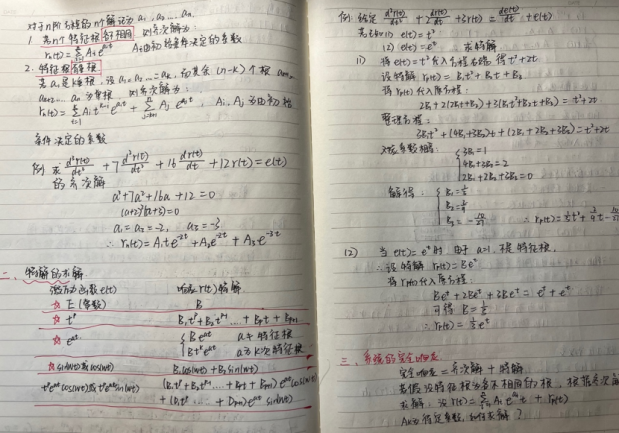 对于n阶方程的n个解记为 a₁, a₂ ... aₙ
1. 若n个特征根各不相同 则齐次解为:
rₕ(t) = Σ Aᵢ e^{aᵢt} Aᵢ由初始条件决定的系数
2. 特征根有重根
若 a₁是k重根, 设 a₁=a₂...=aₖ, 而其余 (n-k) 个根 aₖ₊₁,
aₖ₊₂ ... aₙ 为单根, 则齐次解为:
rₕ(t) = Σ Aᵢ t^{k-i} e^{a₁t} + Σ Aⱼ e^{aⱼt}, Aᵢ, Aⱼ 为由初始
条件决定的系数
例 求 d³r(t)/dt³ + 7 d²r(t)/dt² + 16 dr(t)/dt + 12r(t) = e(t)
的齐次解
a³+7a²+16a+12=0
(a+2)²(a+3)=0
a₁=a₂=-2, a₃=-3
∴ rₕ(t) = A₁te^{-2t} + A₂e^{-2t} + A₃e^{-3t}
二、特解的求解
激励函数e(t) 响应r(t)特解
☆ E (常数) B
☆ t^p B₁t^p+B₂t^{p-1}+...+Bₚt+Bₚ₊₁
☆ e^{at} { Be^{at} a不是特征根
Bt^k e^{at} a为k次特征根
☆ sin(wt)或cos(wt) B₁cos(wt)+B₂sin(wt)
t^p e^{at} cos(wt)或 t^p e^{at} sin(wt) (B₁t^p+B₂t^{p-1}...+Bₚt+Bₚ₊₁) e^{at} cos(wt)
+ (D₁t^p ... + Dₚ₊₁) e^{at} sin(wt)
例: 给定 d²r(t)/dt² + 2 dr(t)/dt + 3r(t) = de(t)/dt + e(t)
若已知 (1) e(t)=t²
(2) e(t)=e^t 求特解
(1) 将 e(t)=t² 代入方程右端, 得 t²+2t
设特解 rₚ(t) = B₁t²+B₂t+B₃
将 rₚ(t) 代入原方程:
2B₁+2(2B₁t+B₂)+3(B₁t²+B₂t+B₃) = t²+2t
整理方程:
3B₁t²+(4B₁+3B₂)t+(2B₁+2B₂+3B₃)=t²+2t
对应系数相等: { 3B₁=1
4B₁+3B₂=2
2B₁+2B₂+3B₃=0
解得: { B₁=1/3
B₂=2/9
B₃=-10/27 ∴ rₚ(t)=1/3t²+2/9t-10/27
(2) 当 e(t)=e^t 时, 由于 a=1, 不是特征根,
∴ 设特解 rₚ(t)=Be^t
将 rₚ(t) 代入原方程:
Be^t+2Be^t+3Be^t=e^t+e^t
可得 B=1/3
∴ rₚ(t)=1/3e^t
三、系统的完全响应
完全响应 = 齐次解 + 特解
若假设特征根为各不相同的根, 根据齐次解
求解: 设 r(t)=Σ Aᵢ e^{aᵢt} + rₚ(t)
Aᵢ为待定系数, 如何求解?